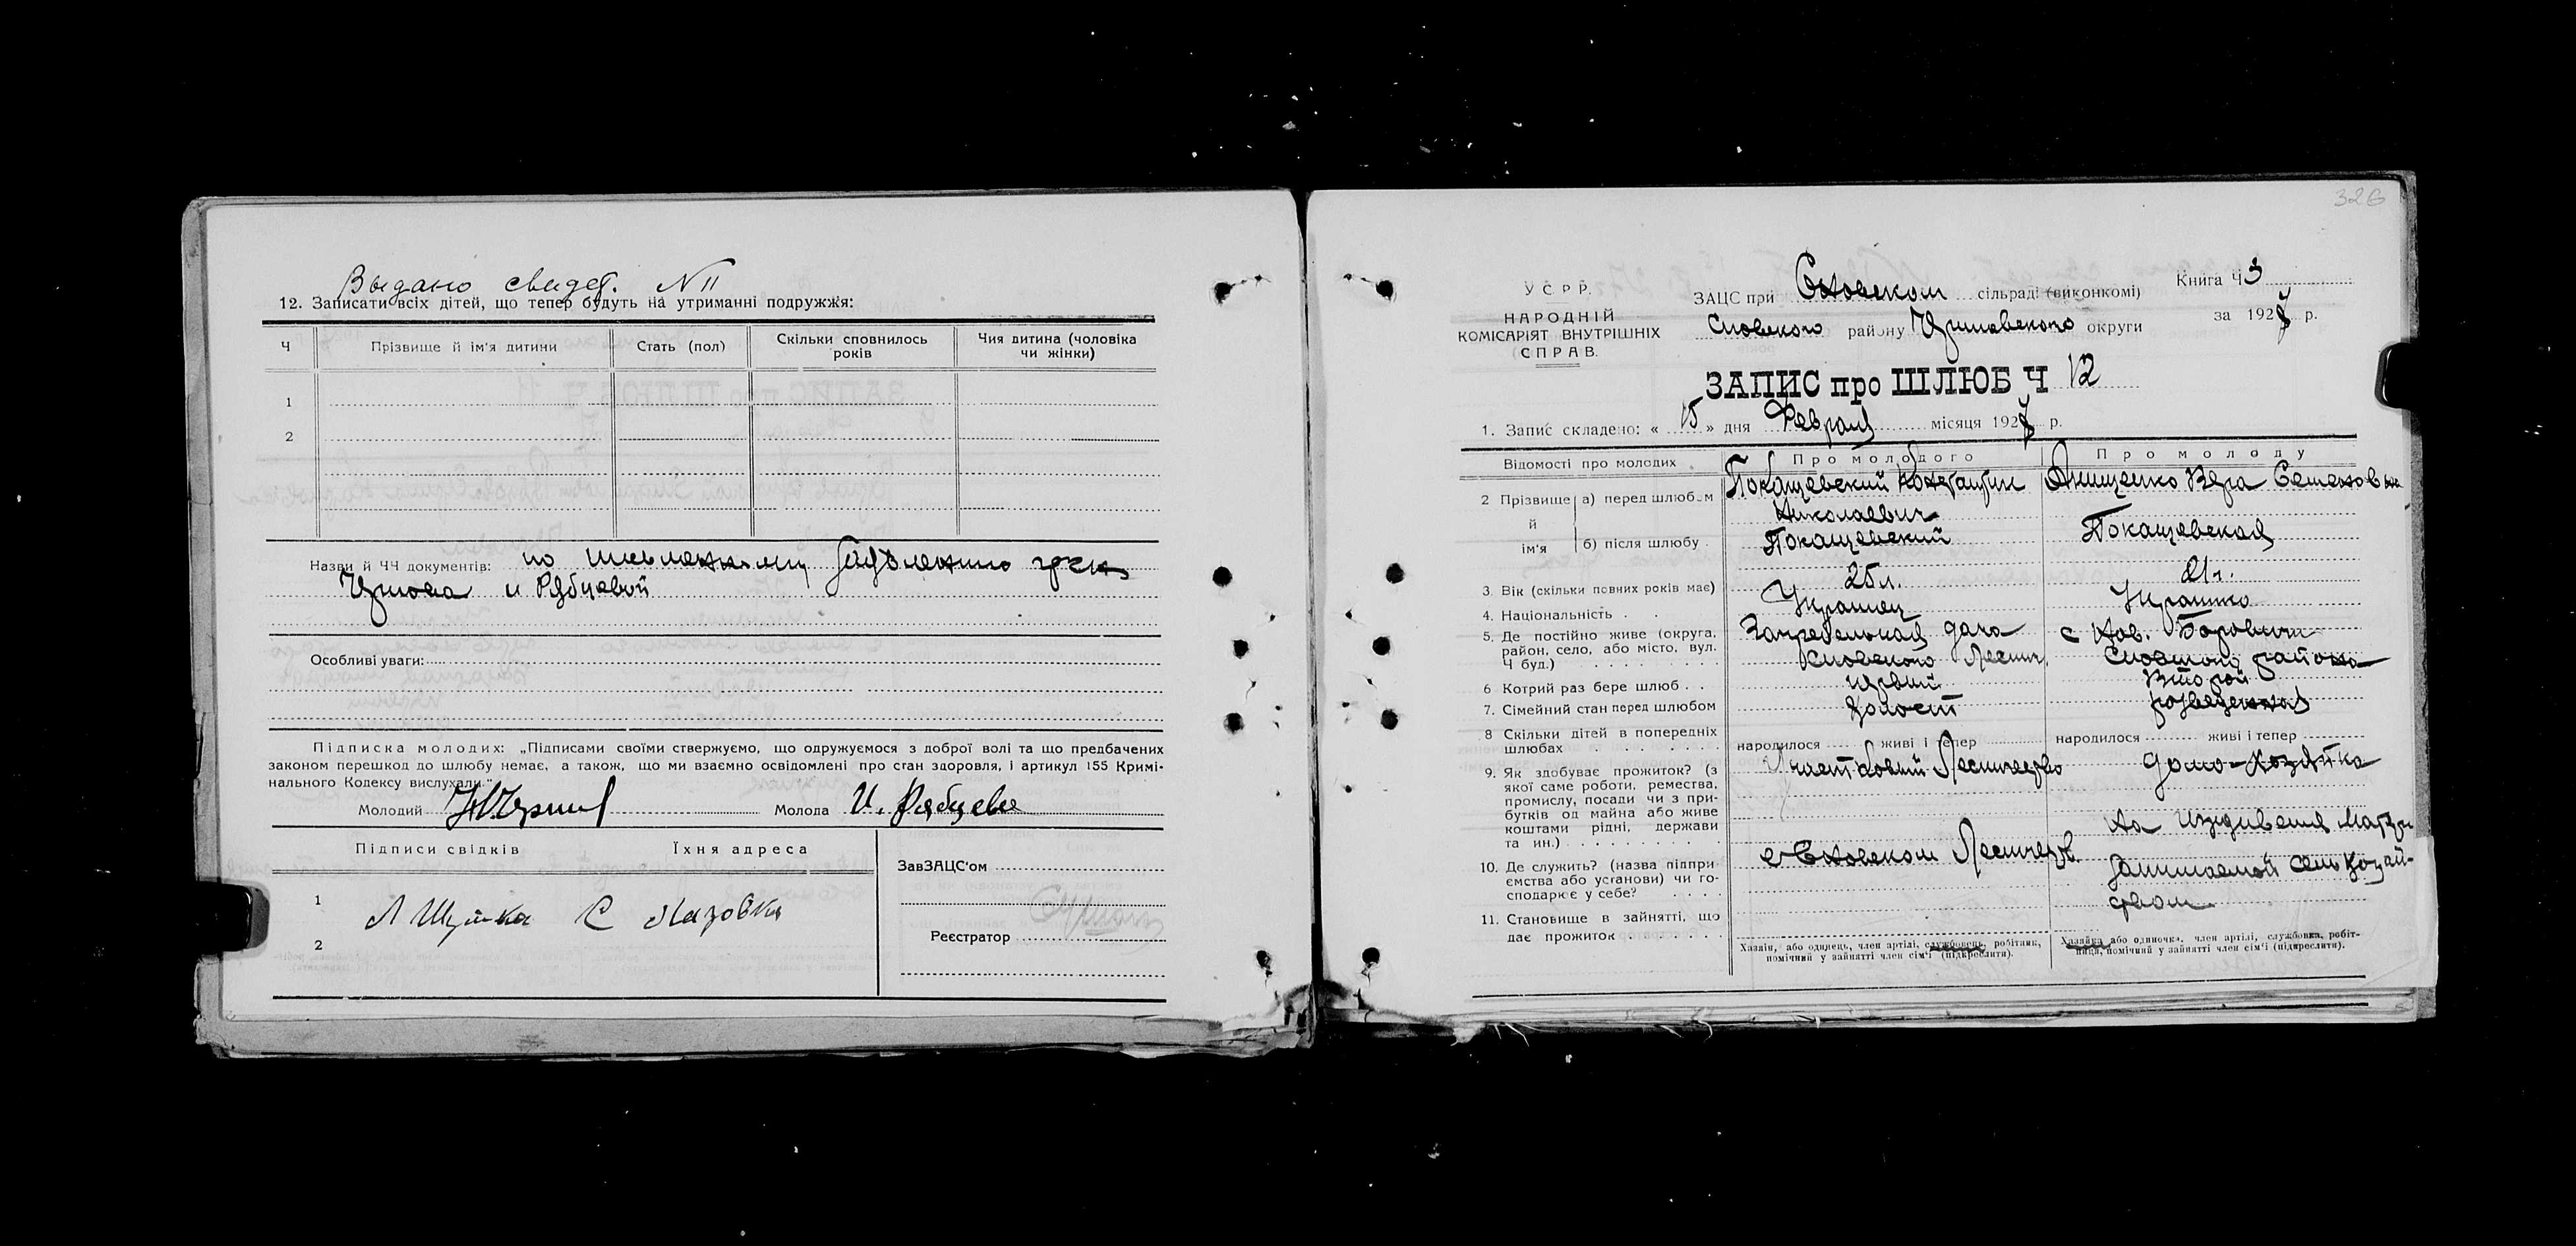 Выдано свидет. N 11
12. Записати всіх дітей, що тепер будуть на утриманні подружжя:
Ч
Прізвище й ім'я дитини
Стать (пол)
Скільки сповнилось років
Чия дитина (чоловіка чи жінки)
1
2
Назви й ЧЧ документів: по
и Рябцевой
Особливі уваги:
Підписка молодих: „Підписами своїми стверджуємо, що одружуємося з доброї волі та що предбачених
законом перешкод до шлюбу немає, а також, що ми взаємно освідомлені про стан здоровля, і артикул 155 Кримі-
нального Кодексу вислухали."
Молодий
Молода И. Рябцева
Підписи свідків
Їхня адреса
1
2
ЗавЗАЦС'ом
Реєстратор
326
УСРР.
НАРОДНІЙ
КОМІСАРІЯТ ВНУТРІШНІХ
СПРАВ.
ЗАЦС при Сновском сільраді (виконкомі)
Сновского району округи
Книга Ч 3
за 1927 р.
ЗАПИС про ШЛЮБ Ч 12
1. Запис складено: « 15 » дня Февраля місяця 1927 р.
Відомості про молодих
Про молодого
Про молоду
2 Прізвище й ім'я
а) перед шлюбом
Покащевский Константин
Николаевич
Анищенко Вера Семеновна
б) після шлюбу
Покащевский
Покащевская
3. Вік (скільки повних років має)
25 л.
21 г.
4. Національність
Украинец
Украинка
5. Де постійно живе (округа,
район, село, або місто, вул.
Ч буд.)
дача
Сновского Леснич.
с Нов. Боровичи
Сновского района
6 Котрий раз бере шлюб
первый
Второй
7. Сімейний стан перед шлюбом
холост
разведенная
8 Скільки дітей в попередніх
шлюбах
народилося живі і тепер
народилося живі і тепер
9. Як здобуває прожиток? (з
якої саме роботи, ремества,
промислу, посади чи з при-
бутків од майна або живе
коштами рідні, держави
та ин.)
Участковый
Домо-хозяйка
10. Де служить? (назва підпри-
ємства або установи) чи го-
сподарює у себе?
в Сновском Лесничест.
На иждивении матери
занимаемой сельхозяй-
ством
11. Становище в зайнятті, що
дає прожиток
Хазяїн, або одинець, член артілі, службовець, робітник,
помічний у зайнятті член сім'ї (підкреслити).
Хазяйка або одиночка, член артілі, службовка, робіт-
ниця, помічний у зайнятті член сім'ї (підкреслити).